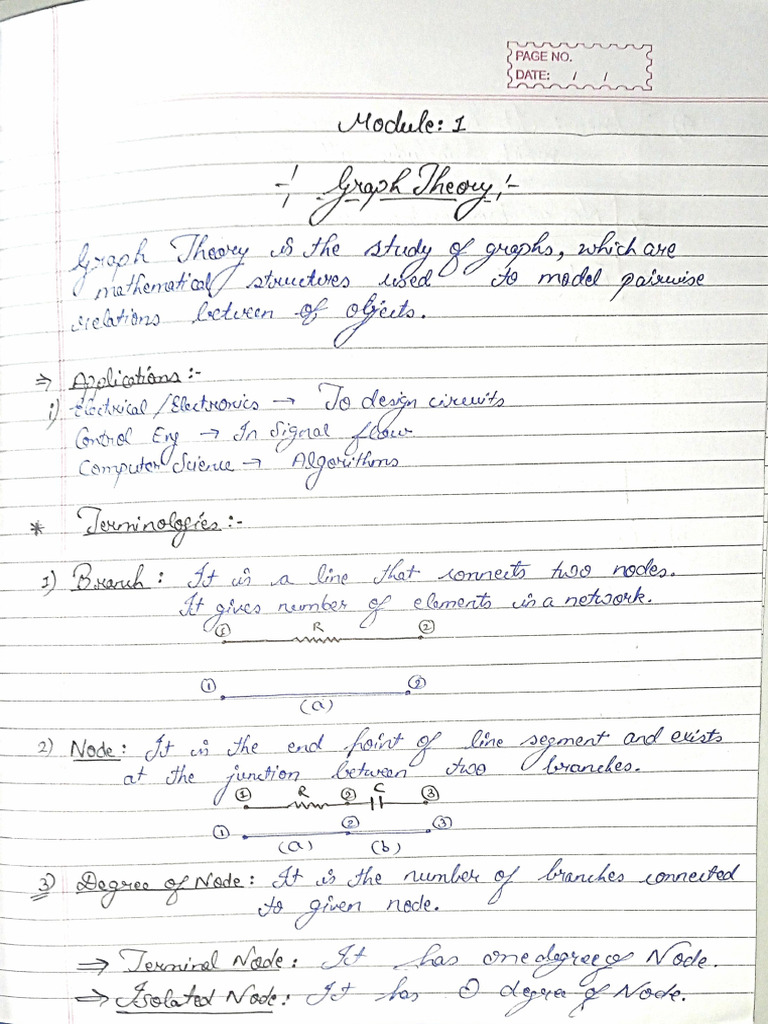 PAGE NO.
DATE: / /
Module: 1
-: Graph Theory :-
Graph Theory is the study of graphs, which are
mathematical structures used to model pairwise
relations between of objects.
⇒ Applications :-
i) Electrical / Electronics → To design circuits
Control Eng → In Signal flow
Computer Science → Algorithms
* Terminologies :-
1) Branch : It is a line that connects two nodes.
It gives number of elements in a network.
① R ②
① ②
(a)
2) Node : It is the end point of line segment and exists
at the junction between two branches.
① R ② C ③
① ② ③
(a) (b)
3) Degree of Node : It is the number of branches connected
to given node.
⇒ Terminal Node : It has one degree of Node.
⇒ Isolated Node : It has 0 degree of Node.